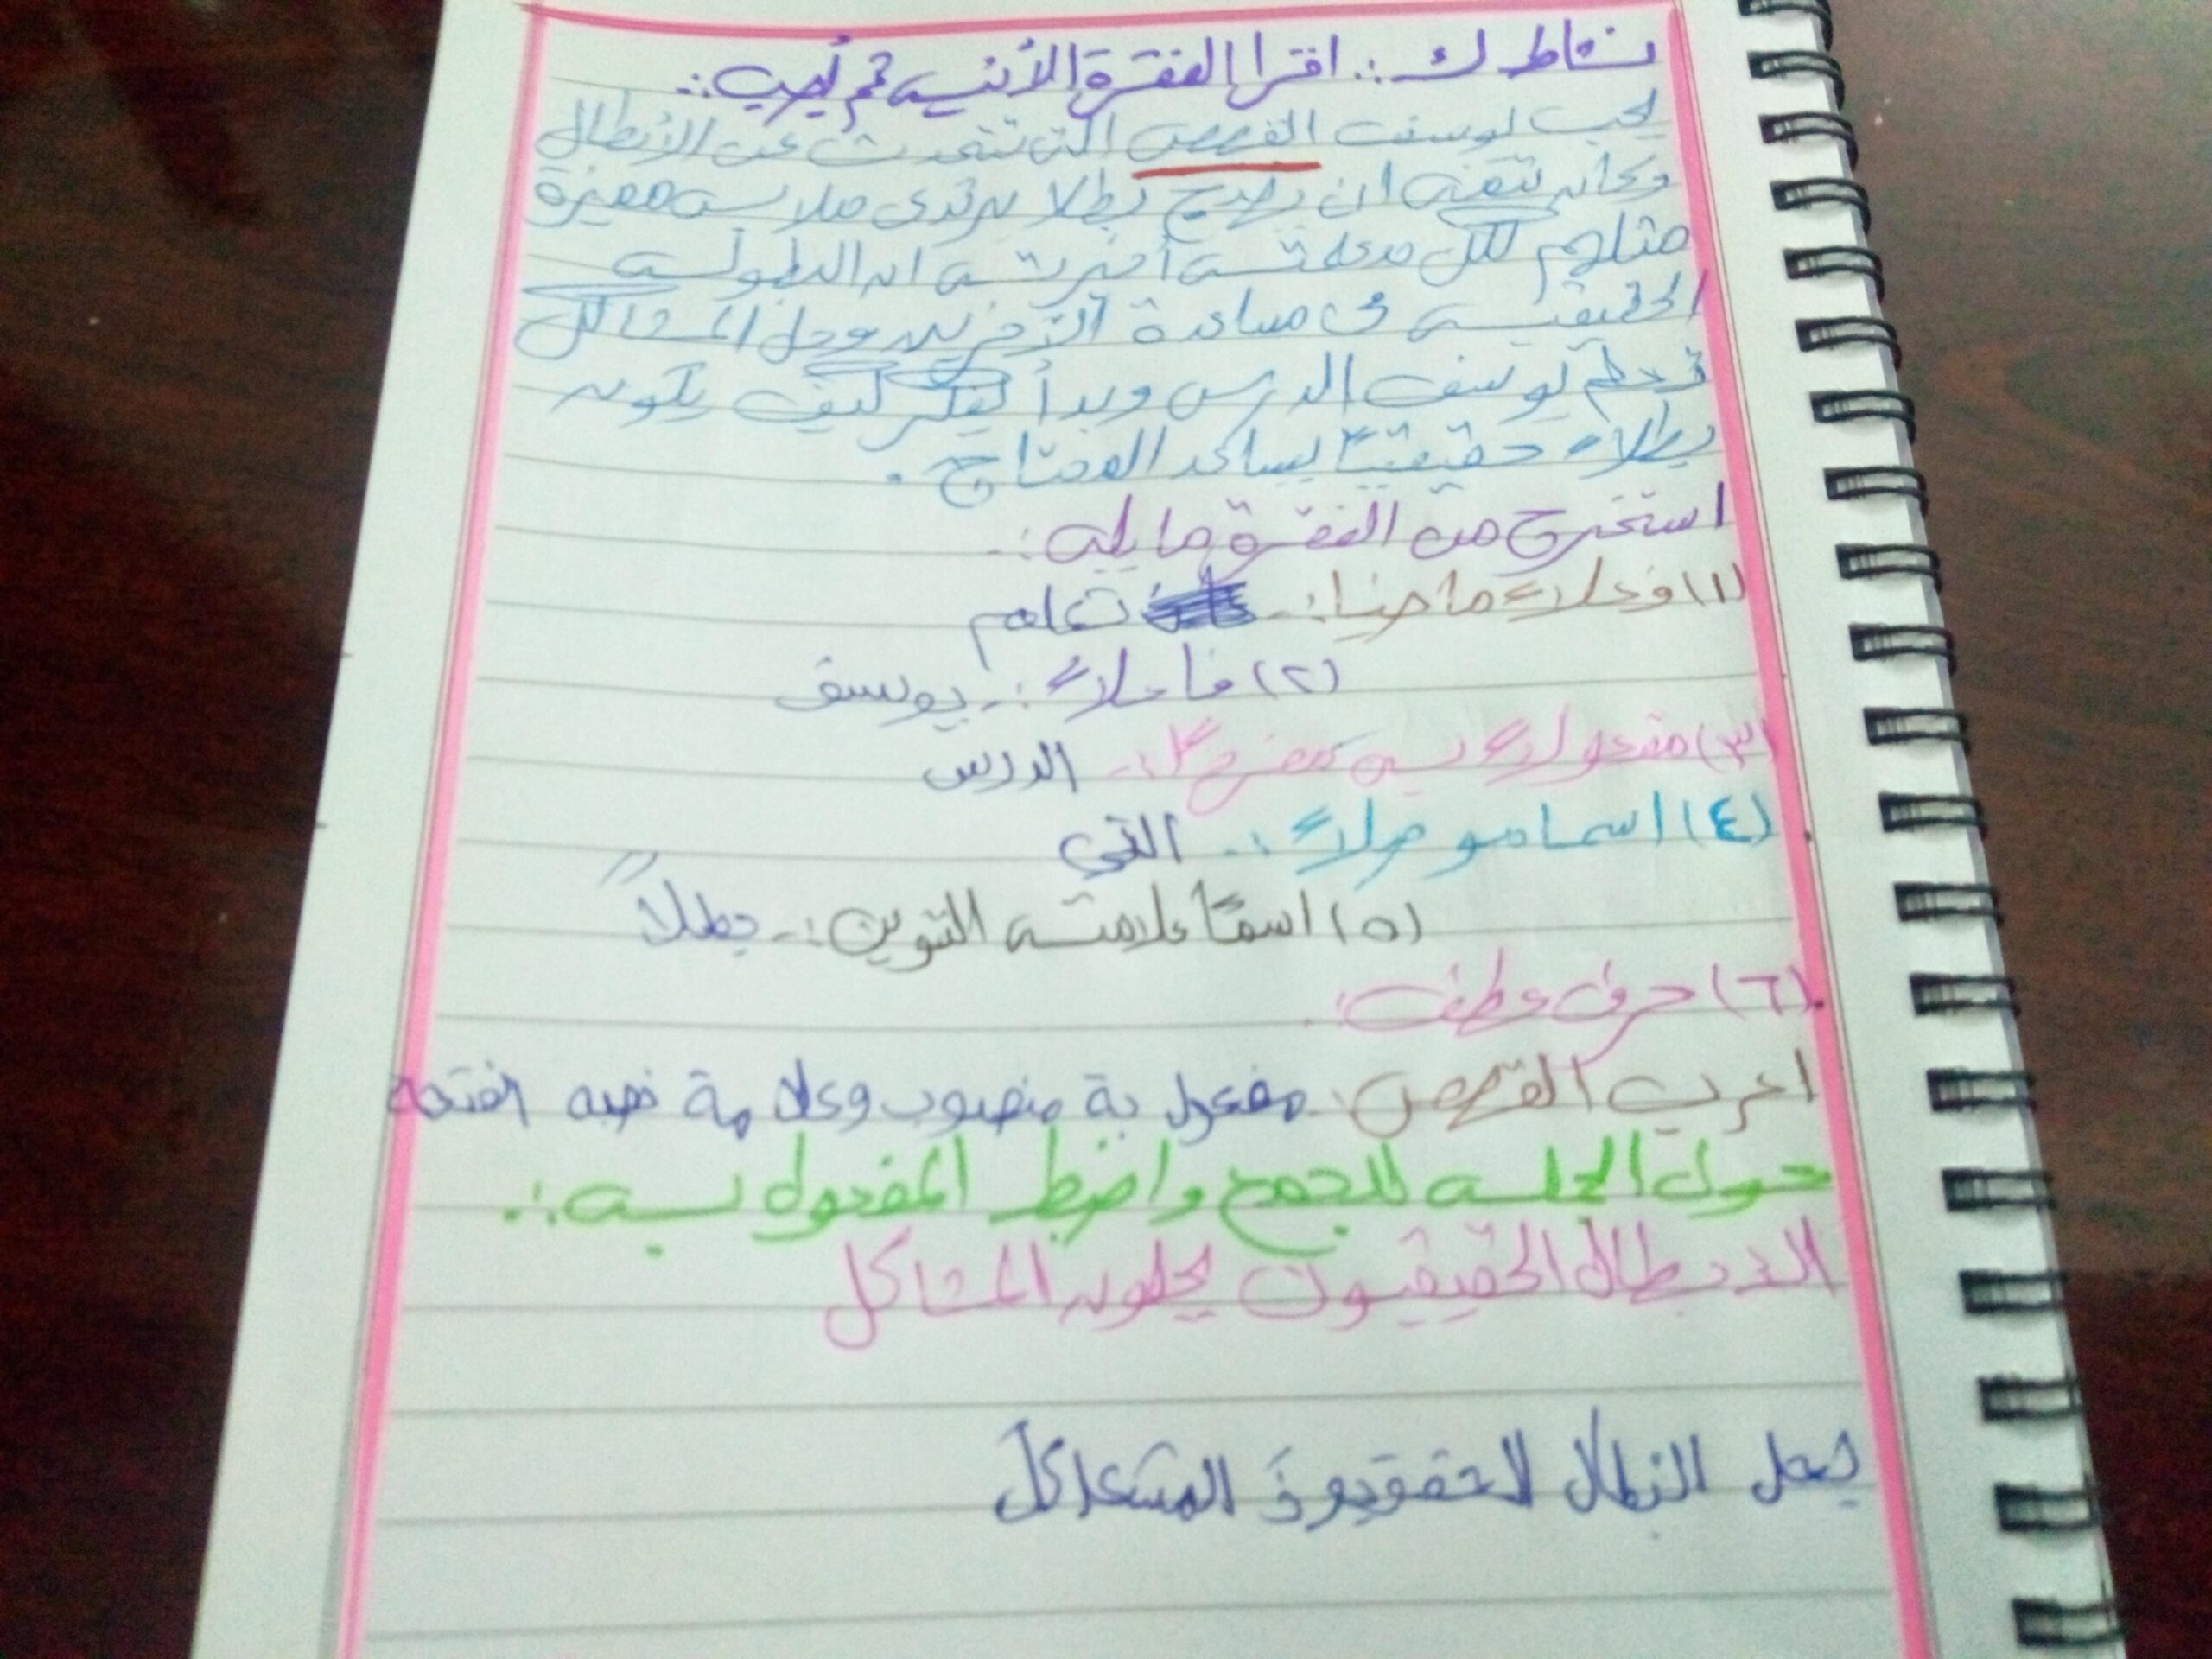 نشاط لك :. اقرا الفقرة الأتيه ثم أجب :.
يحب يوسف القصص التى تتحدث عن الأبطال
وكان يتمنى ان يصبح بطلا يرتدى ملابس مميزة
مثلهم لكن معلمته أخبرته ان البطوله
الحقيقيه فى مساعدة الآخرين وحل المشاكل
تعلم يوسف الدرس وبدأ يفكر كيف يكون
بطلاً حقيقياً يساعد المحتاج .
استخرج من الفقرة ما يلى :.
(١) فعلاً ماضيا :- تعلم
(٢) فاعلاً :- يوسف
(٣) مفعولاً به مفرداً :- الدرس
(٤) اسما موصولاً :- التي
(٥) اسمًا علامته التنوين :- بطلاً
(٦) حرف عطف :
اعرب القصص : مفعول بة منصوب وعلامة نصبه الفتحه
حول الجمله للجمع واضبط المفعول به :.
الأبطال الحقيقيون يحلون المشاكل
يحل البطال المشاكل